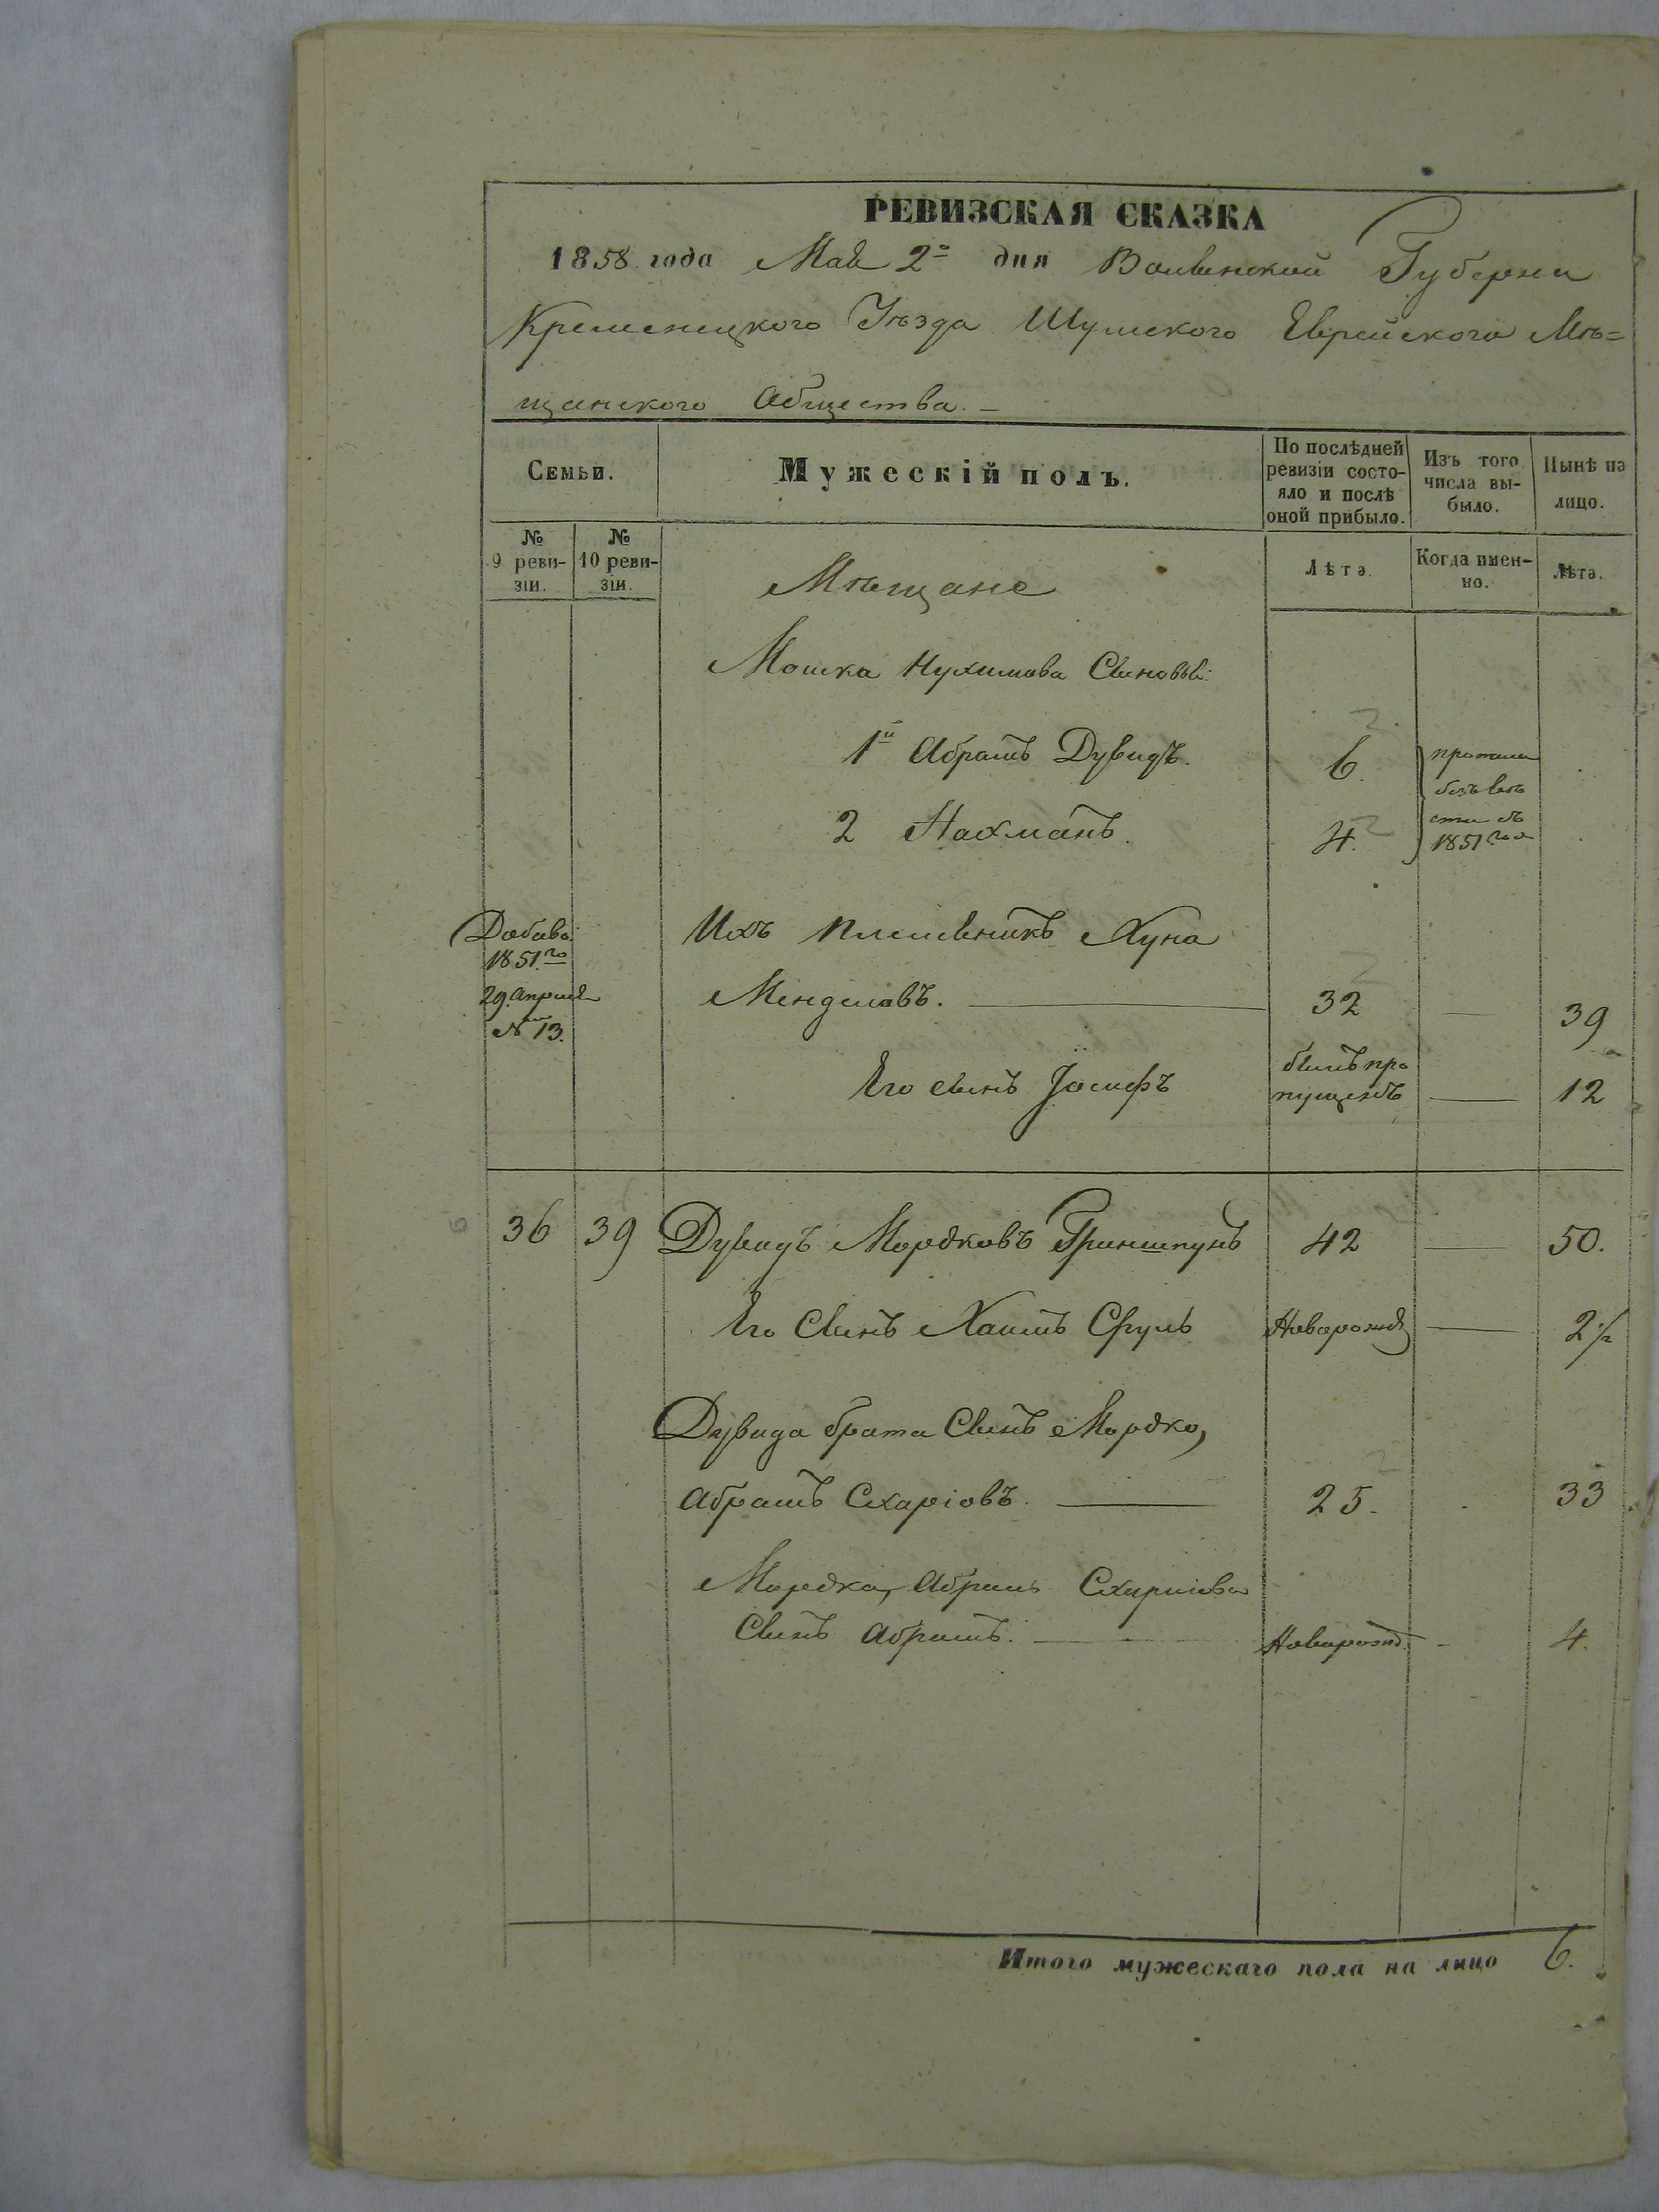 РЕВИЗСКАЯ СКАЗКА
1858 года Мая 2го дня Волынской Губерни
Кременецкого Уѣзда Шумского Еврейского Мѣ=
щанского Общества. —
Семьи.
Мужескій полъ.
По послѣдней ревизіи состо-
яло и послѣ
оной прибыло.
Изъ того
числа вы-
было.
Нынѣ на
лицо.
№
9 реви-
зіи.
№
10 реви-
зіи.
Мѣщане
Лѣта.
Когда имен-
но.
Лѣта.
Мошка Нухимова Сыновья:
1й Абрамъ Дувидъ. 6.
2 Нахманъ. 4.
безъ вѣ
сти съ
1851 года
Добавоч
1851го
29 апреля
№ 13.
Ихъ племеникъ Хуна
Менделовъ. — 32 — 39
Его сынъ Іосифъ былъ про
пущенъ — 12
36 39 Дувидъ Мордковъ Гриншпунъ 42 — 50.
Его Сынъ Хаимъ Сруль Новорожд — 2½
Дувида брата Сынъ Мордко,
Абрамъ Схаріовъ. — 25. 33
Мордка, Абрам Схаріова
Сынъ Абрамъ. — Новорожд. — 4.
Итого мужескаго пола на лицо 6.